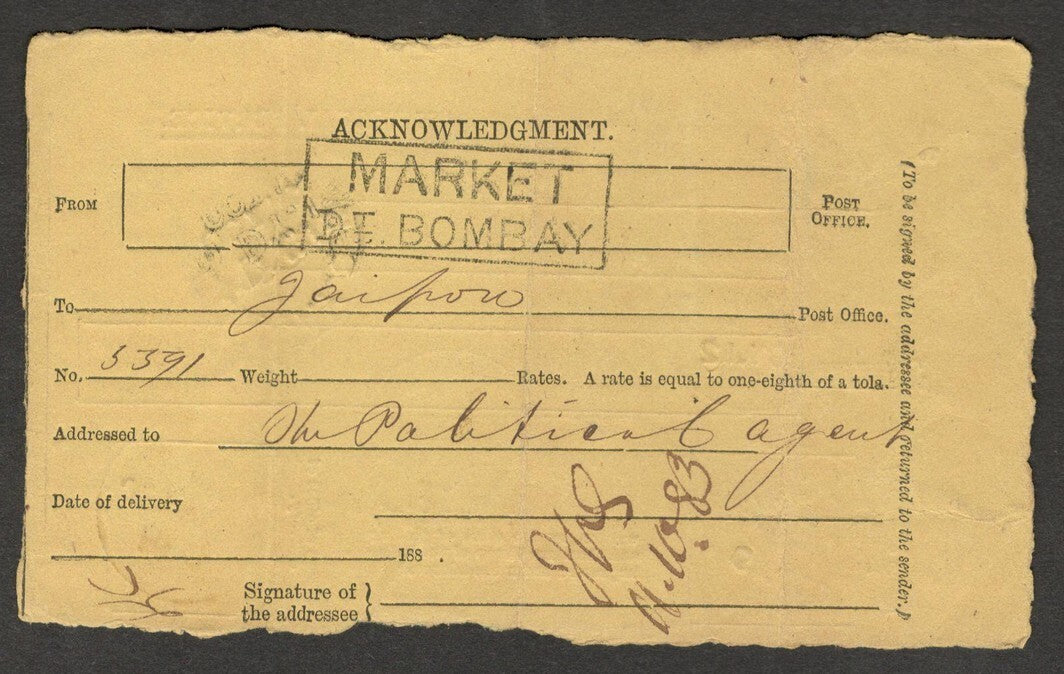 ACKNOWLEDGMENT.
MARKET
FROM
POST
OFFICE.
DT. BOMBAY
To Jaipore Post Office.
No. 5391 Weight Rates. A rate is equal to one-eighth of a tola.
Addressed to The Political agent
Date of delivery
188 .
Signature of
the addressee }
(To be signed by the addressee and returned to the sender.)